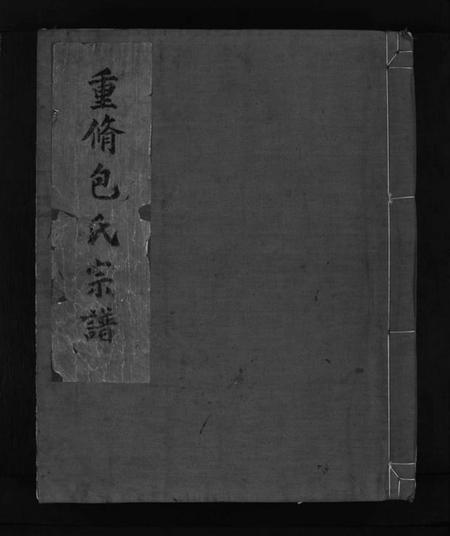 重脩包氏宗譜